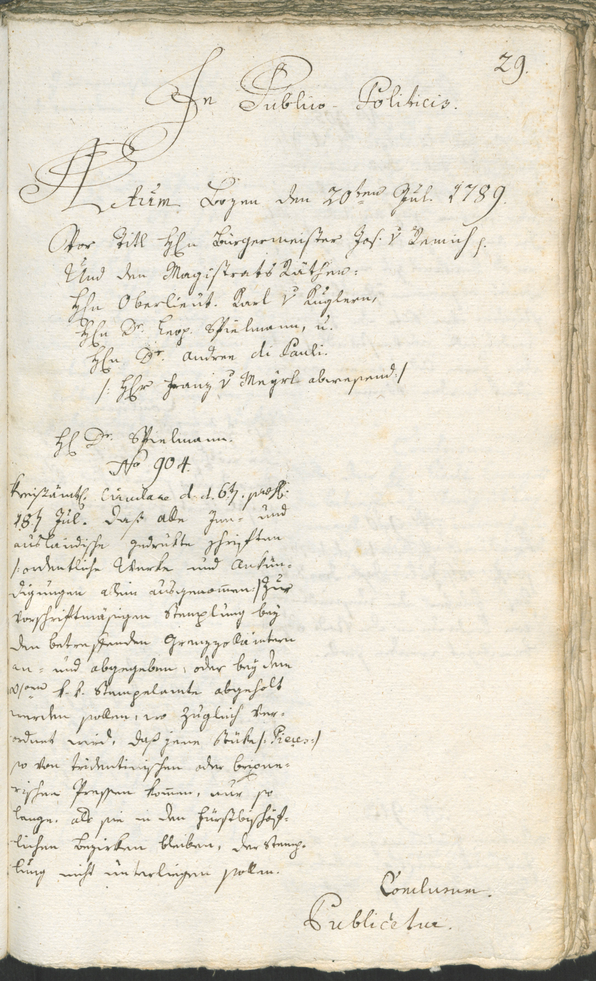 29.
In Publico-Politicis.
Actum Bozen den 20ten Jul. 1789.
Vor Titl Hrn Bürgermeister Jos. v Remich /:
Und den Magistrats Räthen:
Hrn Oberlieut. Karl v Kuglern,
Hrn Dr. Leop. Spielmann, u.
Hrn Dr. Andree di Pauli.
/: Herr Franz v Meyrl abwesend :/
H. Dr. Spielmann.
No 904.
Kreisämtl. Circulare d. d. 6t, praes.
18t Jul. daß alle Inn- und
ausländische gedrukte Schriften
/: ordentliche Werke und Ankün-
digungen allein ausgenommen :/ zur
vorschriftmäsigen Stemplung bey
den betreffenden Grenzzollämtern
an- und abgegeben, oder bey dem
k. k. Stempelamte abgeholt
werden sollen, wo zugleich ver-
ordnet wird, daß jene Stüke /: Pieçes :/
so von tridentinischen oder brixne-
rischen Pressen komen, nur so
lange, als sie in den Fürstbischöf-
lichen Bezirken bleiben, der Stemp-
lung nicht unterliegen sollen.
Conclusum.
Publicetur.